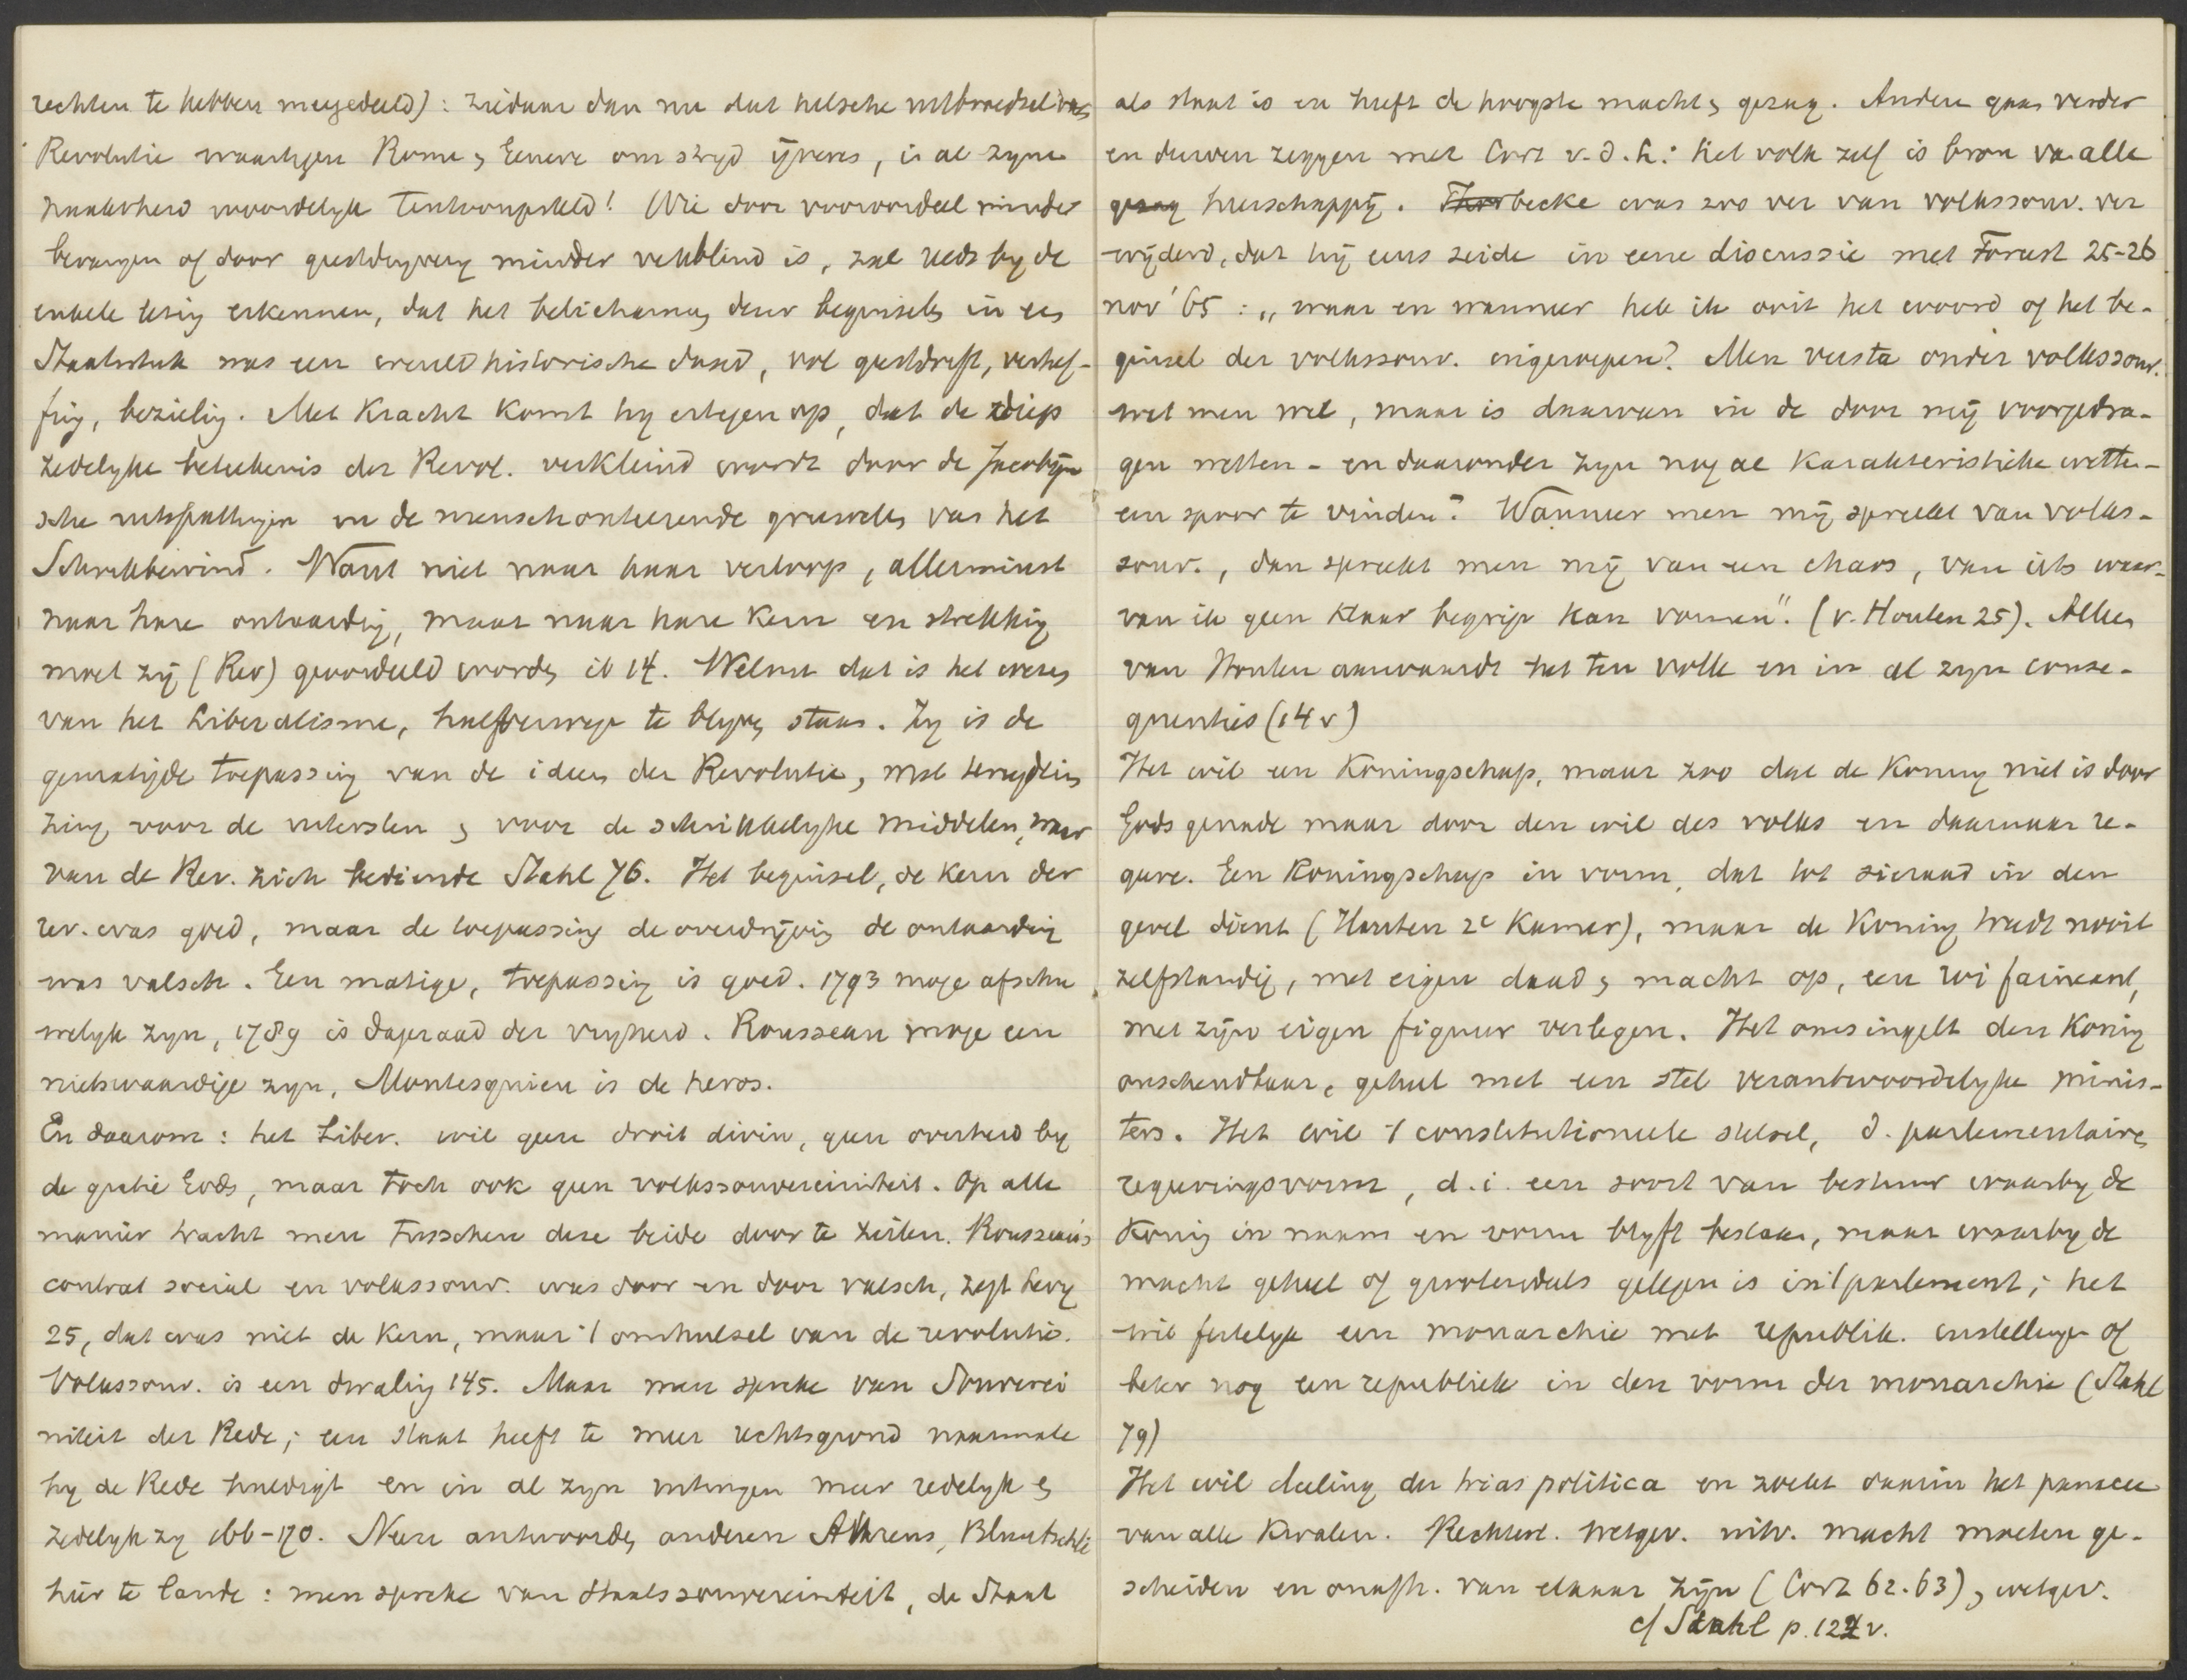 rechten te hebben meegedeeld): ziedaar dan nu dat helsche uitbroedsel van
Revolutie waartegen Rome & Geneve om strijd ijveren, in al zyne
naaktheid woordelyk tentoongesteld! Wie door vooroordeel minder
bevangen of door geestdryvery minder verblind is, zal reeds by de
enkele lezing erkennen, dat het belichaming dezer beginselen in een
Staatsstuk was een wereldhistorische daad, vol geestdrift, verhef-
fing, bezieling. Met kracht komt hy ertegen op, dat de diep
zedelyke beteekenis der Revol. verkleind wordt door de Jacobijn
sche uitspattingen en de menschonteerende gruwelen van het
Schrikbewind. Want niet naar haar verloop, allerminst
naar hare ontaarding, maar naar hare kern en strekking
moet zij (Rev) geoordeeld worden ib 14. Welnu dat is het wezen
van het Liberalisme, halfverwege te blyven staan. Zy is de
gematigde toepassing van de ideen der Revolutie, met terugdein
zing voor de uitersten & voor de schrikkelyke middelen, waar
van de Rev. zich bediende Stahl 76. Het beginsel, de kern der
rev. was goed, maar de toepassing de overdrijving de ontaarding
was valsch. Een matige, toepassing is goed. 1793 moge afschu
welyk zyn, 1789 is dageraad der vryheid. Rousseau moge een
nietswaardige zyn, Montesquieu is de heros.
En daarom: het Liber. wil geen droit divin, geen overheid by
de gratie Gods, maar toch ook geen volkssouvereiniteit. Op alle
manier tracht men tusschen deze beide door te zeilen. Rousseau's
contrat social en volkssouv. was door en door valsch, zegt Levy
25, dat was niet de kern, maar 't omhulsel van de revolutie.
Volkssouv. is een dwaling 145. Maar men spreke van Souverei
niteit der Rede; een staat heeft te meer rechtsgrond naarmate
hy de Rede huldigt en in al zyn uitingen meer redelyk &
zedelyk zy 166-170. Neen antwoorden anderen Ahrens, Bluntschli
hier te lande: men spreke van staatssouvereiniteit, de Staat
als staat is en heeft de hoogste macht & gezag. Andere gaan verder
en durven zeggen met Cort v. d. L: het volk zelf is bron van alle
gezag heerschappij. Thorbecke was zoo ver van volkssouv. ver
wijderd, dat hij eens zeide in eene discussie met Foreest 25-26
nov '65: „waar en wanneer heb ik ooit het woord of het be-
ginsel der volkssouv. ingeroepen? Men versta onder volkssouv.
wat men wil, maar is daarvan in de door mij voorgedra-
gen wetten - en daaronder zyn nog al karakteristieke wetten -
een spoor te vinden? Wanneer men mij spreekt van volks-
souv., dan spreekt men mij van een chaos, van iets waar-
van ik geen klaar begrip kan vormen". (v. Houten 25). Alleen
van Houten aanvaardt het ten volle en in al zyn conse-
quenties (14 v)
Het wil een Koningschap, maar zoo dat de Koning niet is door
Gods genade maar door den wil des volks en daarnaar re-
geere. Een Koningschap in vorm, dat tot sieraad in den
gevel dient (Houten 2e Kamer), maar de Koning treedt nooit
zelfstandig, met eigen daad & macht op, een roi faineant,
met zijn eigen figuur verlegen. Het omsingelt den Koning
onschendbaar, geheel met een stel verantwoordelyke minis-
ters. Het wil 't constitutioneele stelsel, d. parlementairen
regeeringsvorm, d.i. een soort van bestuur waarby de
Koning in naam en vorm blyft bestaan, maar waarby de
macht geheel of grootendeels gelegen is in 't parlement; het
wil feitelyk een monarchie met republik. instellingen of
beter nog een republiek in den vorm der monarchie (Stahl
79)
Het wil deeling der trias politica en zoekt daarin het panacee
van alle kwalen. Rechterl. wetgev. uitv. macht moeten ge-
scheiden en onafh. van elkaar zijn (Cort 62.63), wetgev.
cf Stahl p. 122 v.